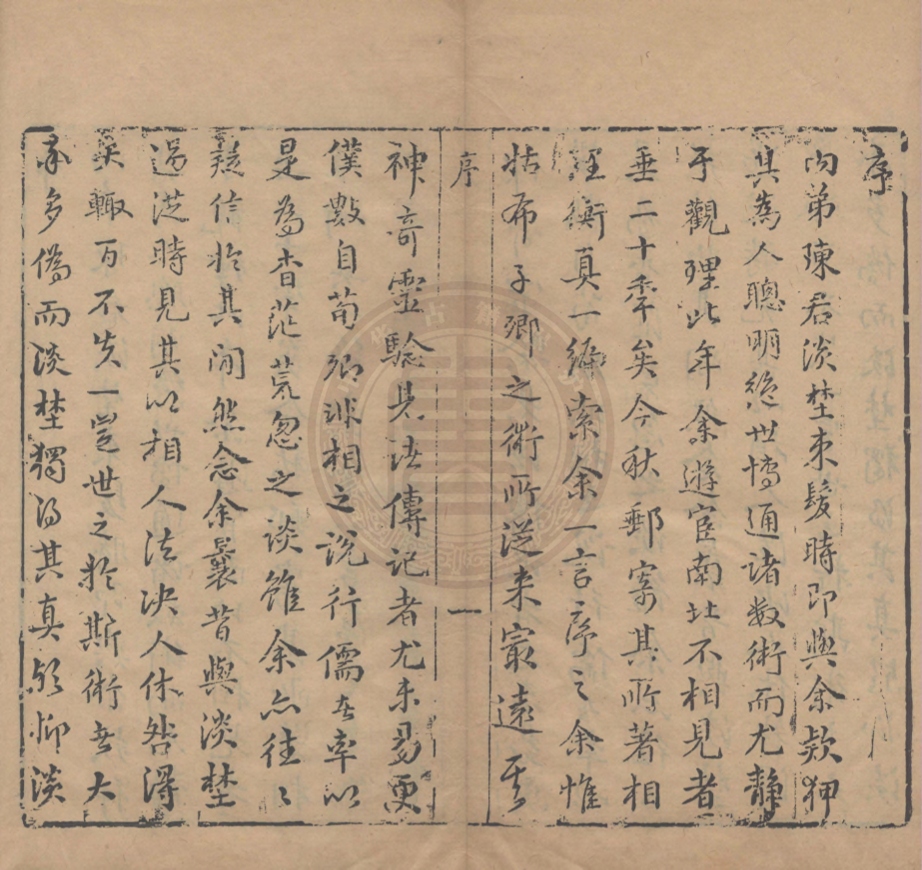 序
内弟陳君淡埜束髮時即與余欵狎
其為人聰明絶世博通諸數術而尤静
于觀理比年余遊宦南北不相見者
垂二十季矣今秋郵寄其所著相
理衡真一編索余一言序之余惟
姑布子卿之術所從来冣遠其
序
一
神奇靈驗見諸傳記者尤未易更
僕數自荀卿非相之說行儒者率以
是為杳茫荒忽之談雖余亦往〻
疑信於其閒然念余曩昔與淡埜
過從時見其以相人法决人休咎淂
失輙百不失一豈世之於斯術者大
率多偽而淡埜獨得其真歟抑淡